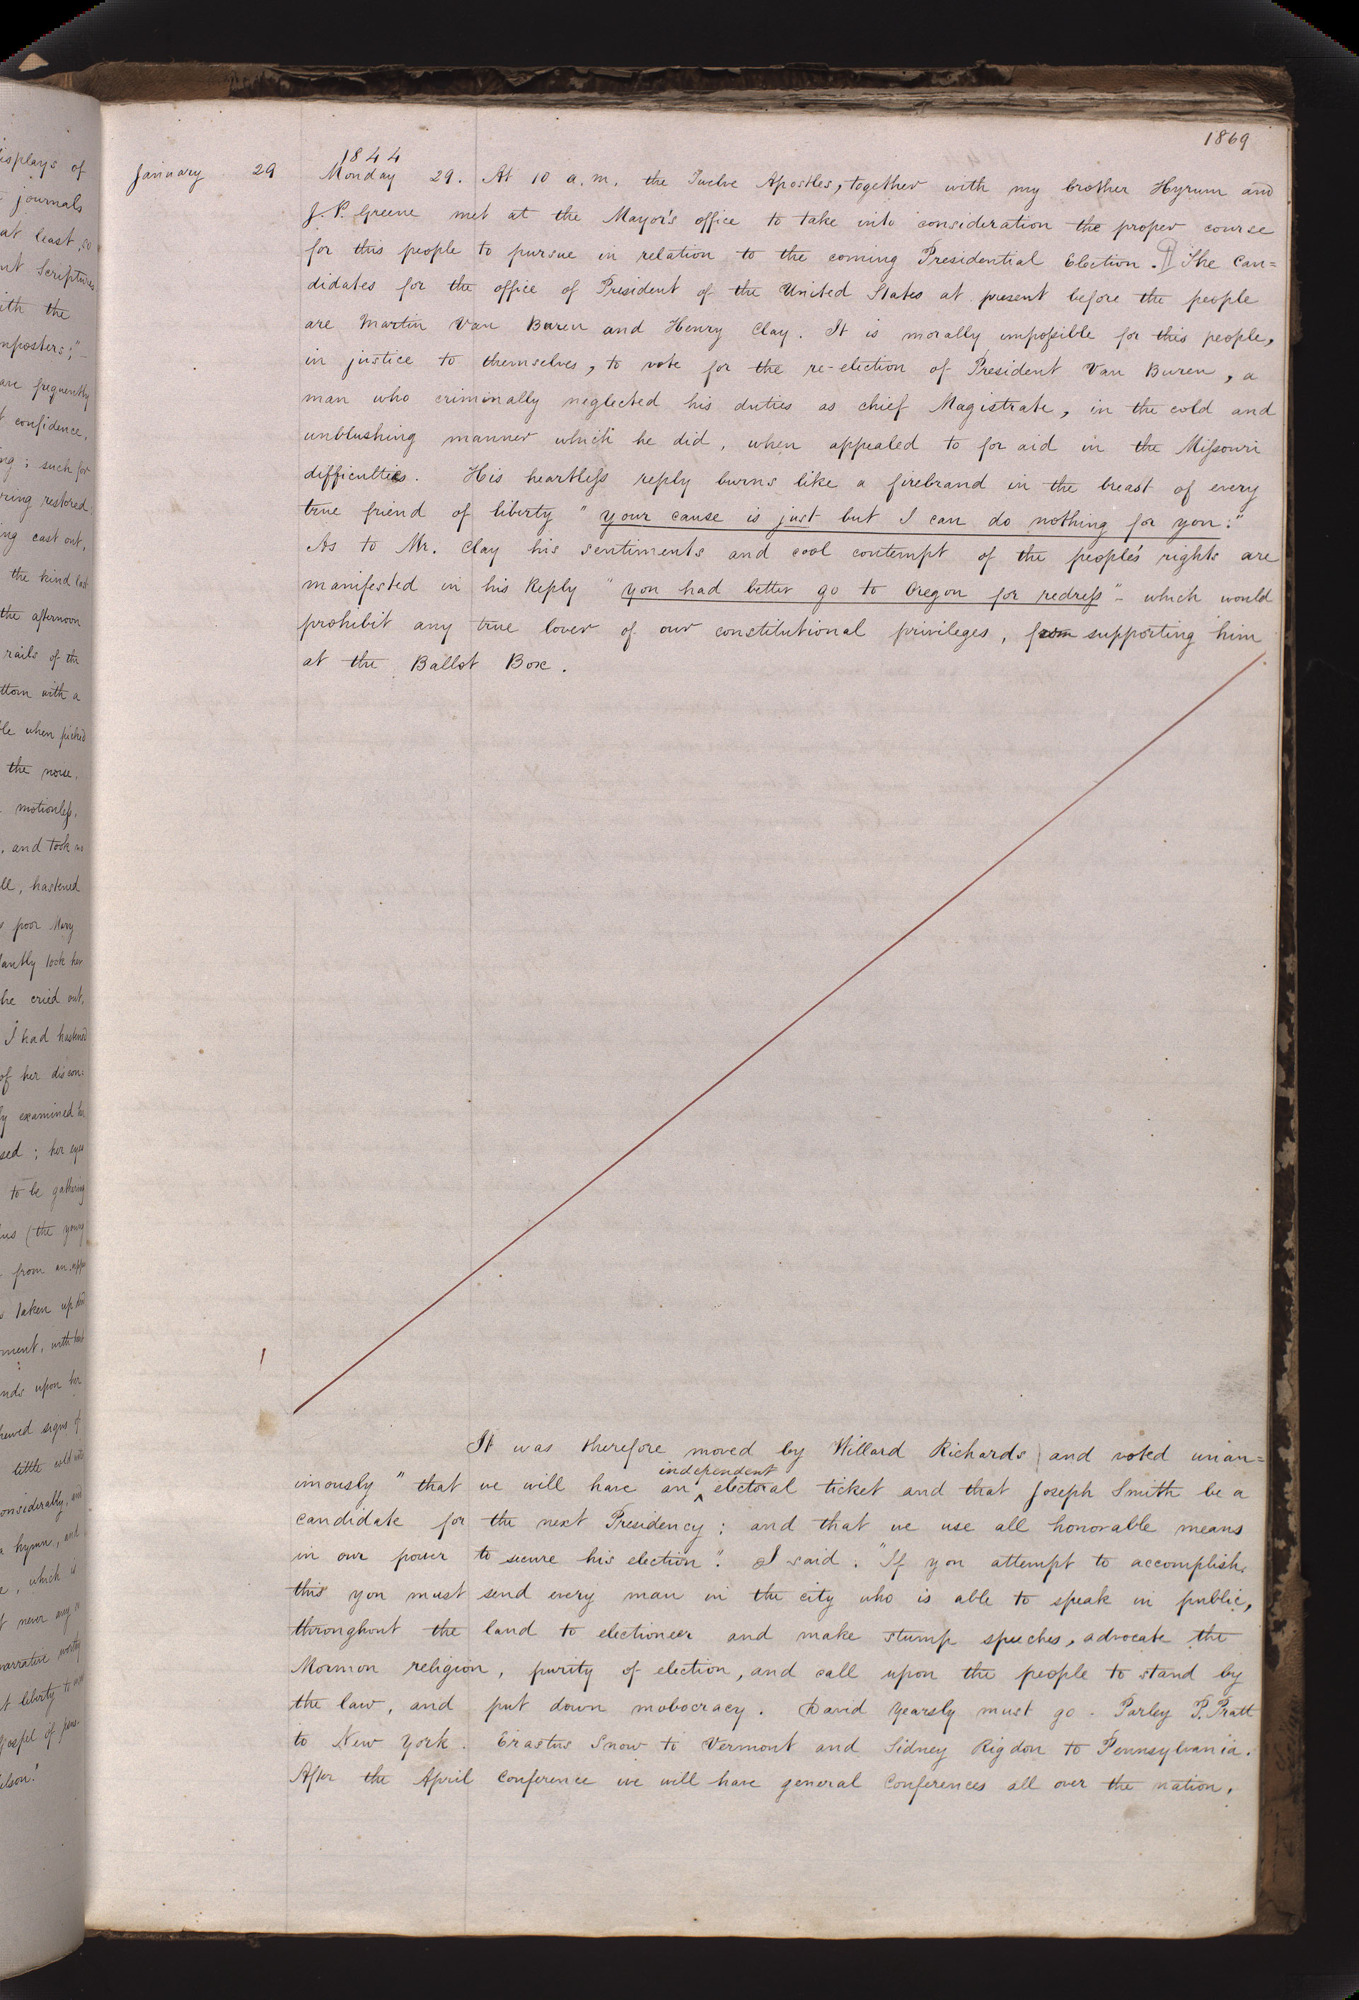 1869
January 29
1844
Monday 29. At 10 a.m. the Twelve Apostles, together with my brother Hyrum and
J. P. Greene met at the Mayor's office to take into consideration the proper course
for this people to pursue in relation to the coming Presidential Election. The can=
didates for the office of President of the United States at present before the people
are Martin Van Buren and Henry Clay. It is morally impossible for this people,
in justice to themselves, to vote for the re-election of President Van Buren, a
man who criminally neglected his duties as chief Magistrate, in the cold and
unblushing manner which he did, when appealed to for aid in the Missouri
difficulties. His heartless reply burns like a firebrand in the breast of every
true friend of liberty "your cause is just but I can do nothing for you."
As to Mr. Clay his sentiments and cool contempt of the people's rights are
manifested in his Reply "you had better go to Oregon for redress" - which would
prohibit any true lover of our constitutional privileges, from supporting him
at the Ballot Box.
It was therefore moved by Willard Richards and voted unan=
imously "that we will have an independent electoral ticket and that Joseph Smith be a
candidate for the next Presidency; and that we use all honorable means
in our power to secure his election". I said. "If you attempt to accomplish
this you must send every man in the city who is able to speak in public,
throughout the land to electioneer and make stump speeches, advocate the
Mormon religion, purity of election, and call upon the people to stand by
the law, and put down mobocracy. David Yearsly must go. Parley P. Pratt
to New York. Erastus Snow to Vermont and Sidney Rigdon to Pennsylvania.
After the April Conference we will have general Conferences all over the nation,
displays of
journals
at least, so
Scriptures
with the
imposters;"
are frequently
confidence,
such for
being restored
cast out,
the kind
the afternoon
rails of the
bottom with a
when picked
the noise,
motionless,
and took no
hastened
poor Mary
took her
he cried out,
I had hastened
of her discon:
examined her
her eyes
to be gathering
(the young
from an
taken up
ment, with
upon her
signs of
little
considerably, and
hymn, and
which is
never any
narrative worthy
liberty to
Gospel of